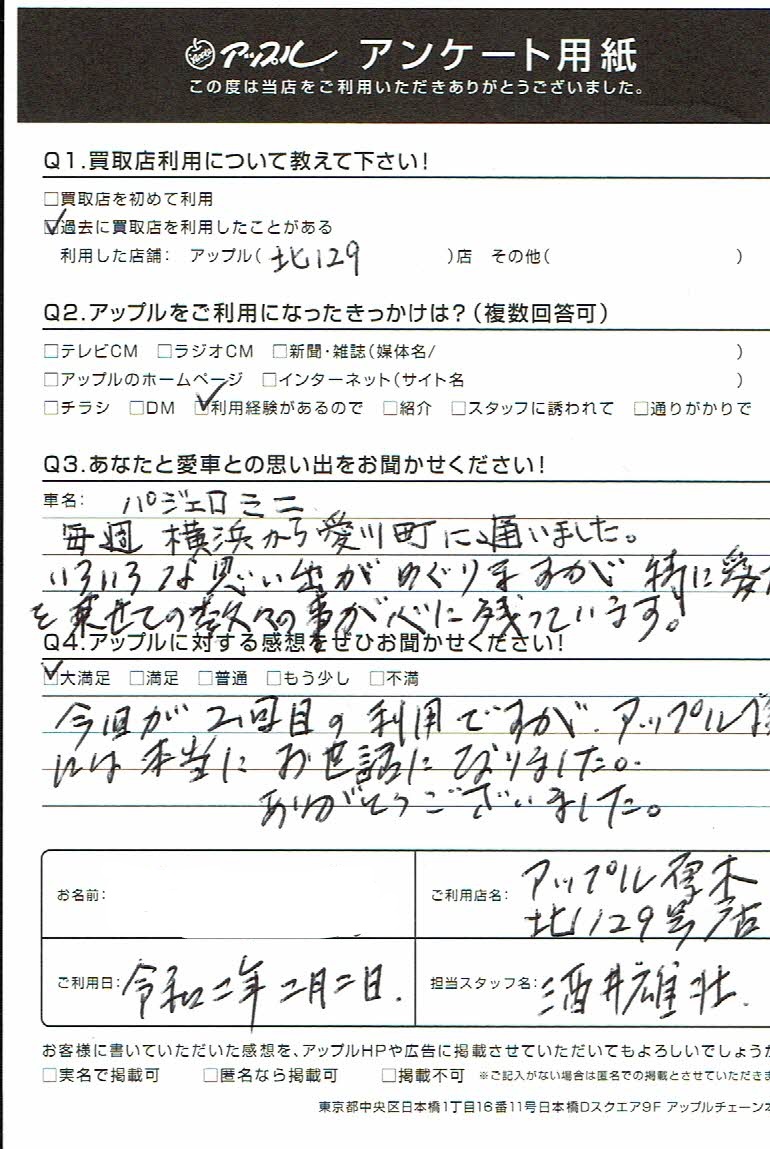 アップル アンケート用紙
この度は当店をご利用いただきありがとうございました。
Q1.買取店利用について教えて下さい!
□買取店を初めて利用
☑過去に買取店を利用したことがある
利用した店舗: アップル( 北129 )店 その他( )
Q2.アップルをご利用になったきっかけは?(複数回答可)
□テレビCM □ラジオCM □新聞・雑誌(媒体名/ )
□アップルのホームページ □インターネット(サイト名 )
□チラシ □DM ☑利用経験があるので □紹介 □スタッフに誘われて □通りがかりで
Q3.あなたと愛車との思い出をお聞かせください!
車名: パジェロミニ
毎週 横浜から愛川町に通いました。
いろいろな思い出がめぐりますが 特に愛
を乗せての数々の事が心に残っています。
Q4.アップルに対する感想をぜひお聞かせください!
☑大満足 □満足 □普通 □もう少し □不満
今回が2回目の利用ですが、アップル様
には本当にお世話になりました。
ありがとうございました。
お名前:
ご利用店名: アップル厚木
北129号店
ご利用日: 令和二年二月二日.
担当スタッフ名: 酒井雄壮.
お客様に書いていただいた感想を、アップルHPや広告に掲載させていただいてもよろしいでしょうか
□実名で掲載可 □匿名なら掲載可 □掲載不可 ※ご記入がない場合は匿名での掲載とさせていただきま
東京都中央区日本橋1丁目16番11号日本橋Dスクエア9F アップルチェーン本